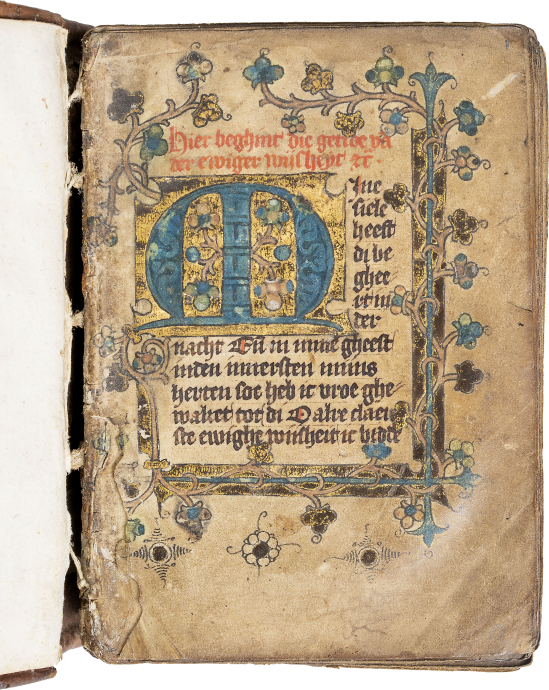 Hier beghint die getide vā
der ewiger wijsheyt &c̄ ·
Mine
siele
heeft
di be
ghee-
rt in
der
nacht En̄ in mine gheest
inden inuersten mijns
herten soe heb ic vroe ghe-
waket tot di O alre claer-
ste ewighe wijsheit ic bidde